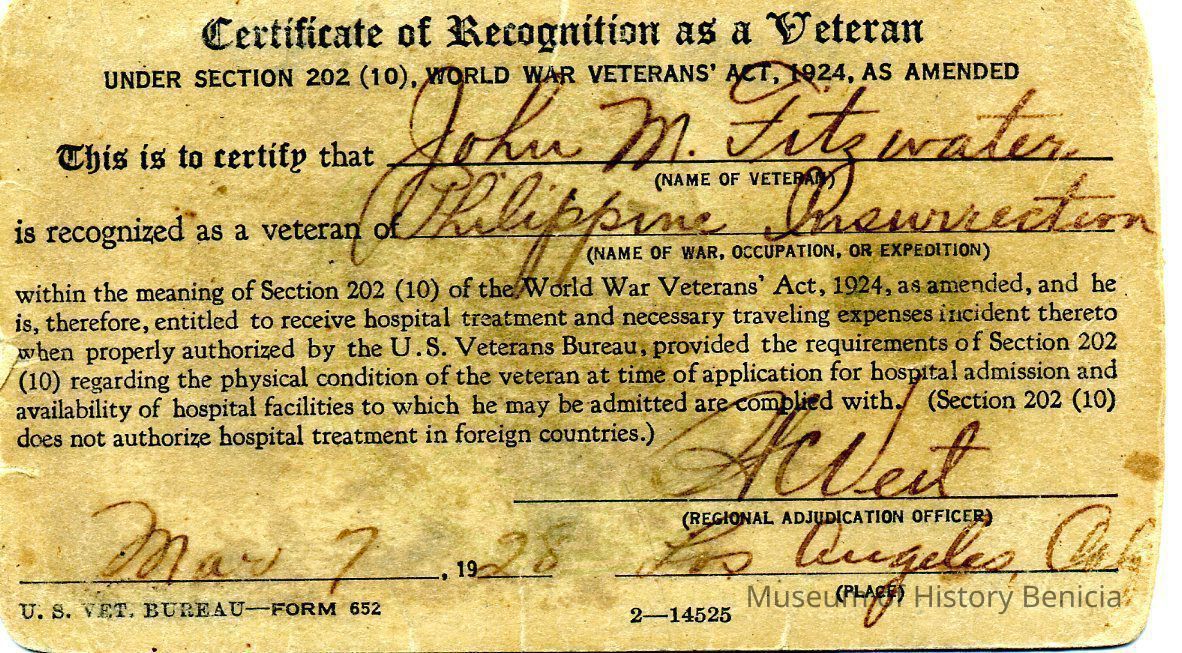 Certificate of Recognition as a Veteran
UNDER SECTION 202 (10), WORLD WAR VETERANS' ACT, 1924, AS AMENDED
This is to certify that John M. Fitzwater
(NAME OF VETERAN)
is recognized as a veteran of Philippine Insurrection
(NAME OF WAR, OCCUPATION, OR EXPEDITION)
within the meaning of Section 202 (10) of the World War Veterans' Act, 1924, as amended, and he
is, therefore, entitled to receive hospital treatment and necessary traveling expenses incident thereto
when properly authorized by the U. S. Veterans Bureau, provided the requirements of Section 202
(10) regarding the physical condition of the veteran at time of application for hospital admission and
availability of hospital facilities to which he may be admitted are complied with. (Section 202 (10)
does not authorize hospital treatment in foreign countries.)
(REGIONAL ADJUDICATION OFFICER)
Mar 7, 1928 Los Angeles,
(PLACE)
U. S. VET. BUREAU—FORM 652
2—14525
Museum of History Benicia